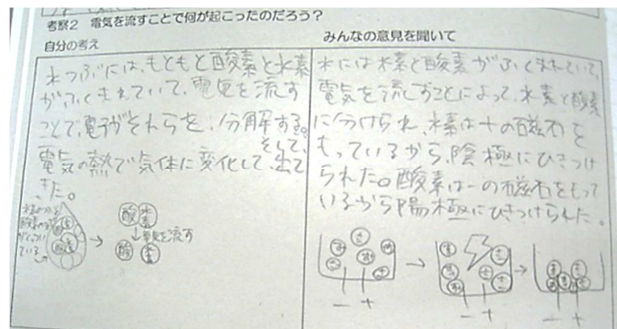 考察2 電気を流すことで何が起こったのだろう?
自分の考え
水つぶには、もともと酸素と水素
がふくまれていて、電気を流す
ことで、電子がそれらを、分解する。
そして、
電気の熱で気体に変化して、出て
きた。
酸 水素
↓電気を流す
酸 素
みんなの意見を聞いて
水には水素と酸素がふくまれていて、
電気を流しすことによって、水素と酸素
に分けられ、水素は+の磁石を
もっているから、陰極にひきつけ
られた。酸素は-の磁石をもって
いるから陽極にひきつけられた。
- +
- +
- +